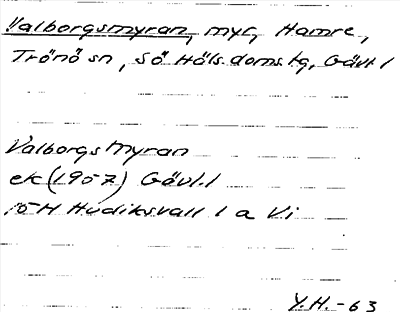 Valborgsmyran, myr, Hamre,
Trönö sn, Sö Häls. doms. tg, Gävl. l
Valborgsmyran
ek (1957) Gävl. l
15H Hudiksvall 1 a Vi
Y.H. -63